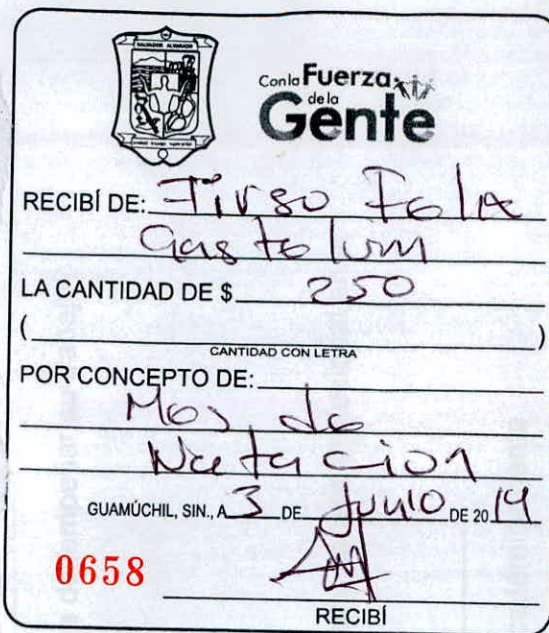 SALVADOR ALVARADO
Con la Fuerza
de la
Gente
RECIBÍ DE: Tirso Felix
Gastelum
LA CANTIDAD DE $ 250
( )
CANTIDAD CON LETRA
POR CONCEPTO DE:
Mes de
Natacion
GUAMÚCHIL, SIN., A 3 DE Junio DE 2014
0658
RECIBÍ